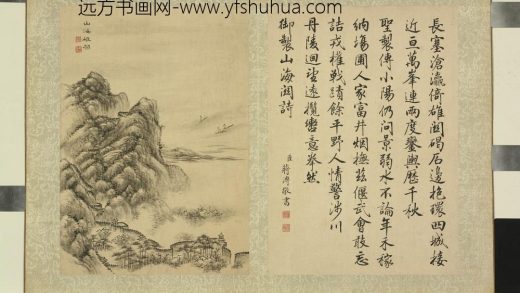 远方书画网-www.yfshuhua.com
長塞滄瀛倚雄關碣石邊抱環四城棲
近亘萬峯連兩度鑾輿歷千秋
聖製傳小陽仍問景弱水不論年禾稼
納場圃人家富井烟撫茲偃武會敢忘
詰戎權戰蹟餘平野人情警涉川
丹陵迴望遠攬轡意拳然
御製山海關詩
臣蔣溥敬書
山海雄關